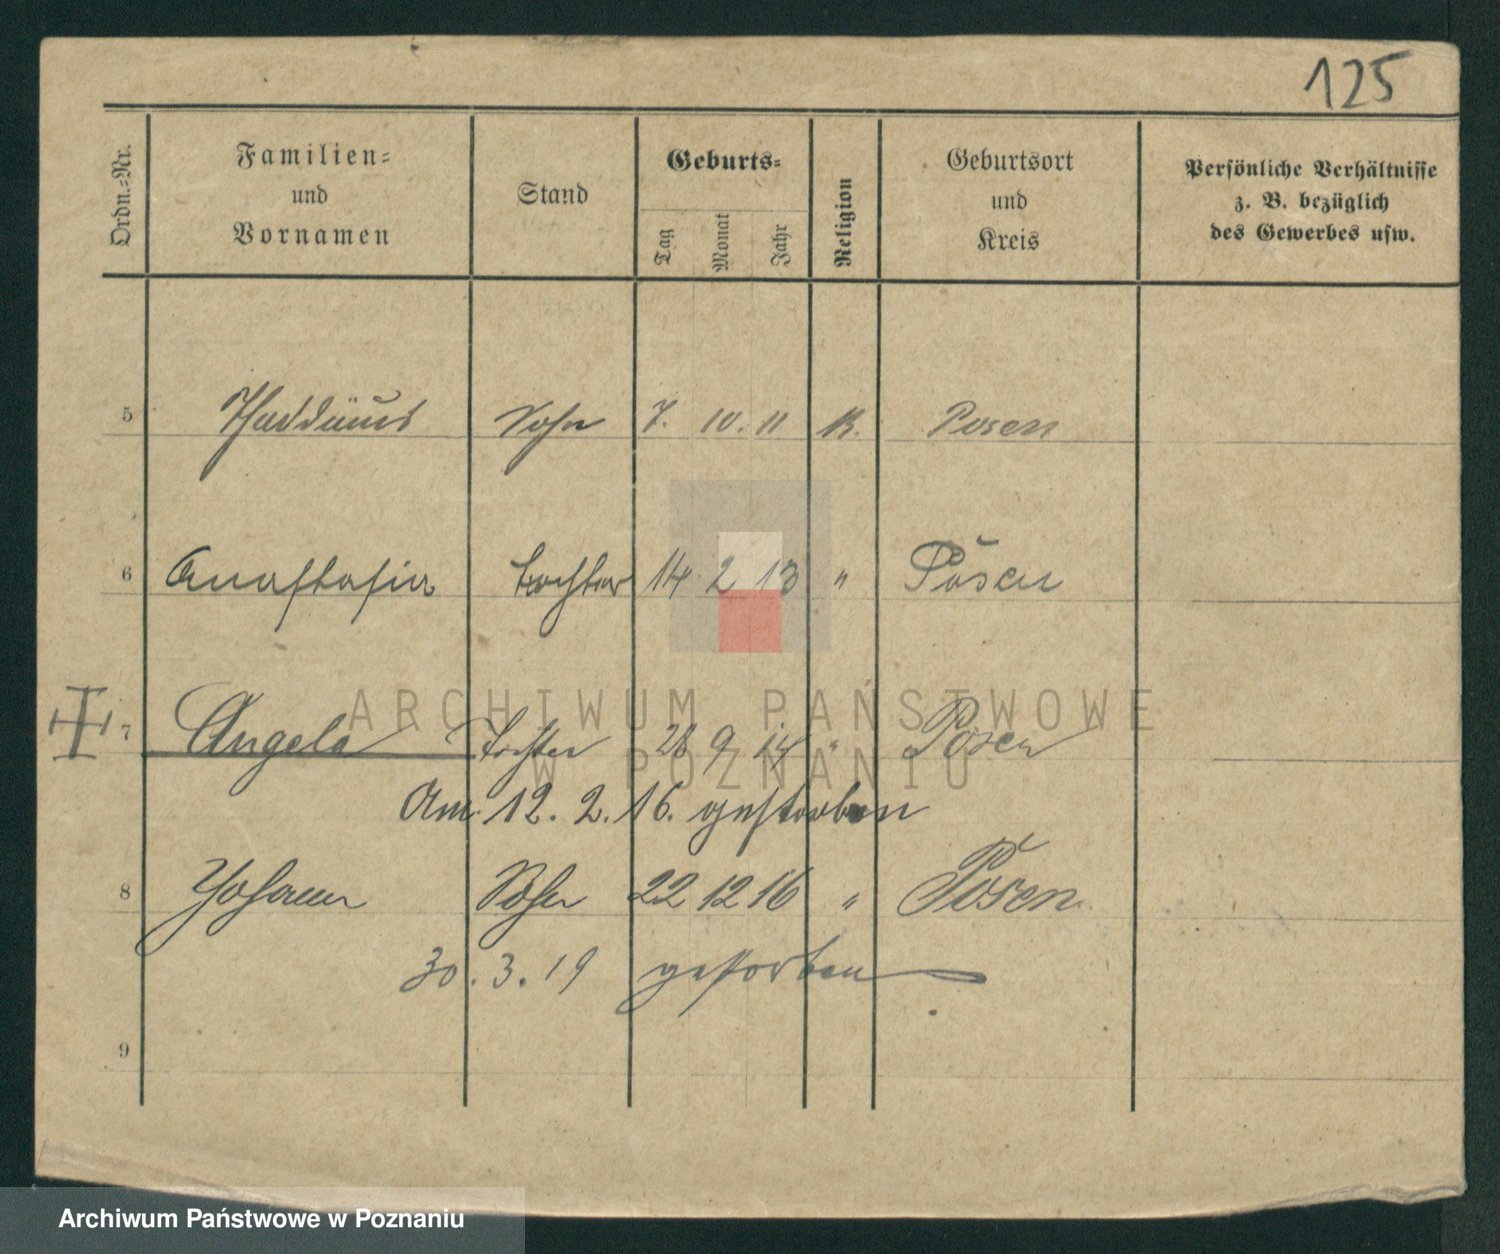 125
Ordn.-Nr.
Familien-
und
Vornamen
Stand
Geburts-
Tag
Monat
Jahr
Religion
Geburtsort
und
Kreis
Persönliche Verhältnisse
z. B. bezüglich
des Gewerbes usw.
5 Thaddäus Sohn 7. 10. 11 K. Posen
6 Anastasia Tochter 14 2 13 " Posen
7 Angela Tochter 28 9 14 " Posen
Am. 12. 2. 16. gestorben
8 Johann Sohn 22 12 16 " Posen
30. 3. 19 gestorben
9
ARCHIWUM PAŃSTWOWE
W POZNANIU
Archiwum Państwowe w Poznaniu